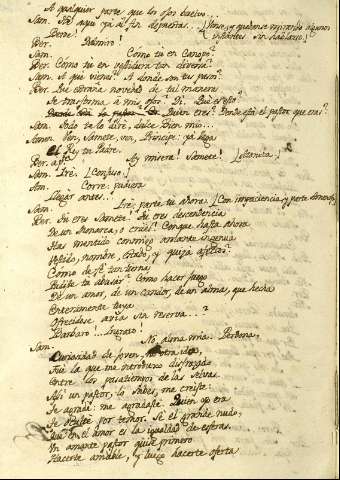 A qualquier parte que los ojos buelvo...
Sam. Hè aquì ya à fin despuestas... (Llega, y quedanse mirando algunos
instantes sin hablarse.)
Bere!
Ber. Dalmiro!
Sam. Como tu en Canope?
Ber. Como tu en vestidura tan diversa?
Sam. A que vienes? A donde son tus pasos?
Ber. Que estraña novedad de tu manera
Se transforma à mis ojos? Di. Que es esto?
Quien eres? Donde està el pastor que eras?
Sam. Todo te lo diré, dulce bien mio...
Amen. Ven, Samete, ven, Principe: ya llega
El Rey tu Padre.
Ber. Ay misera! Samete! (Llorando.)
Sam. Iré. (Confuso.)
Am. Corre: pudiera
Llegar antes.
Sam. Iré: parte tu ahora. (Con impaciencia y parte Amenof.)
Ber. Tu eres Samete? Tu eres descendencia
De un Monarca, o cruel! Conque hasta ahora
Has mentido conmigo amante ingenua
Vestido, nombre, estado, y quizà afectos?
Como de fè tan tierna
Pudiste tu abusar? Como hacer juego
De un amor, de un candor, de un alma, que hecha
Enteramente tuya
Ofrecidose avia sin reserva...?
Barbaro!.. Ingrato!..
Sam. No, alma mia: Perdona,
Curiosidad de joven, no otra idea,
Fue la que me introduxo disfrazado
Entre los pasatiempos de las selvas.
Alli un pastor, lo sabes, me creiste:
Te agradè: me agradaste. Quien yo era
Te oculte por temor. Sè el grande nudo,
Que en el amor es la igualdad de esferas.
Un amante pastor quise primero
Hacerte amable, y luego hacerte oferta